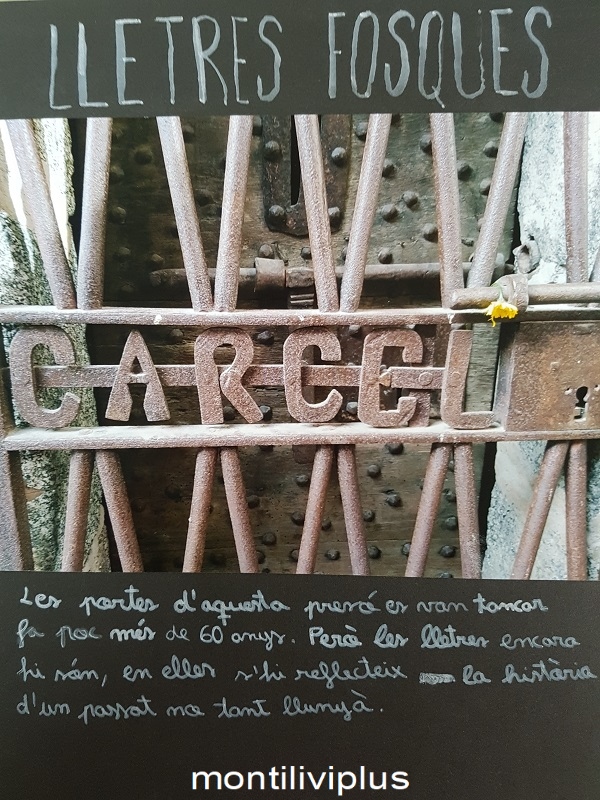 LLETRES FOSQUES
CARCEL
Les portes d'aquesta presó es van tancar
fa poc més de 60 anys. Però les lletres encara
hi són, en elles s'hi reflecteix la història
d'un passat no tant llunyà.
montiliviplus